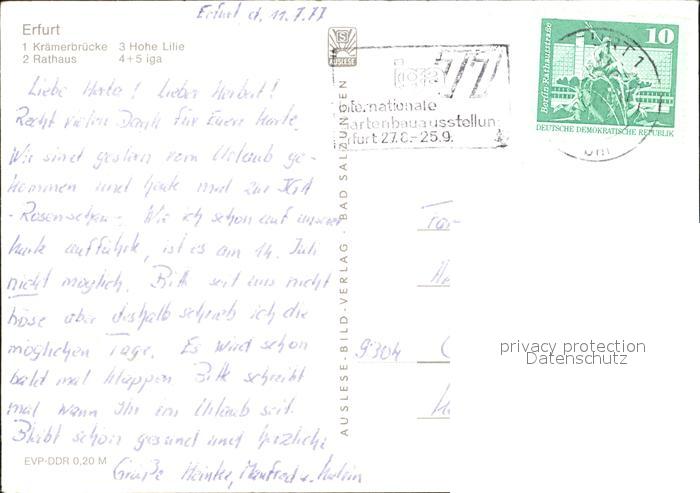 Erfurt, d. 11.7.77
Erfurt
1 Krämerbrücke 3 Hohe Lilie
2 Rathaus 4+5 iga
AUSLESE
77
internationale
gartenbauausstellung
erfurt 27.8.-25.9.
10
Berlin, Rathausstraße
DEUTSCHE DEMOKRATISCHE REPUBLIK
Liebe Herta! Lieber Herbert!
Recht vielen Dank für Eure Karte.
Wir sind gestern vom Urlaub ge-
kommen und heute mal zur IGA
-Rosenschau-. Wie ich schon auf unserer
Karte aufführte, ist es am 14. Juli
nicht möglich. Bitte seit uns nicht
böse aber deshalb schrieb ich die
möglichen Tage. Es wird schon
bald mal klappen. Bitte schreibt
mal wann Ihr im Urlaub seit.
Bleibt schön gesund und herzliche
Grüße Manfred u.
AUSLESE-BILD-VERLAG · BAD SALZUNGEN
9304
EVP-DDR 0,20 M
privacy protection
Datenschutz